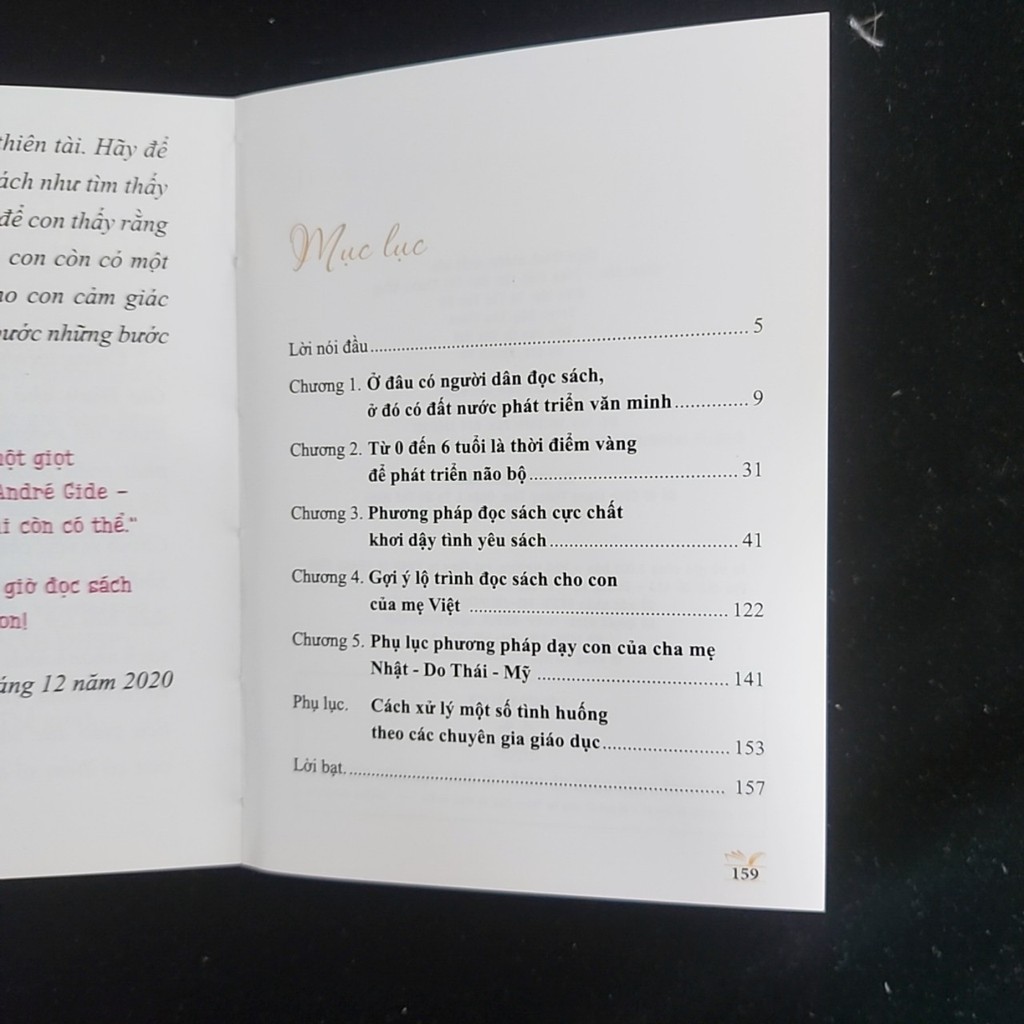 thiên tài. Hãy để
như tìm thấy
để con thấy rằng
con còn có một
con cảm giác
những bước
giọt
André Gide –
còn có thể."
giờ đọc sách
12 năm 2020
Mục lục
Lời nói đầu........ 5
Chương 1. Ở đâu có người dân đọc sách,
ở đó có đất nước phát triển văn minh........ 9
Chương 2. Từ 0 đến 6 tuổi là thời điểm vàng
để phát triển não bộ........ 31
Chương 3. Phương pháp đọc sách cực chất
khơi dậy tình yêu sách........ 41
Chương 4. Gợi ý lộ trình đọc sách cho con
của mẹ Việt ........ 122
Chương 5. Phụ lục phương pháp dạy con của cha mẹ
Nhật - Do Thái - Mỹ ........ 141
Phụ lục. Cách xử lý một số tình huống
theo các chuyên gia giáo dục........ 153
Lời bạt........ 157
159